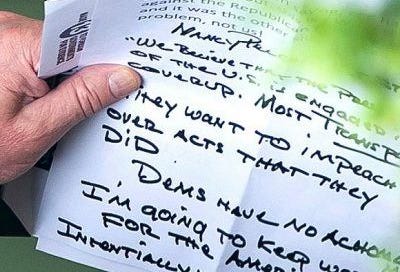 against the Republican
and it was the other
problem, not us!
Nancy
"We Believe that the Pres
of the U.S. is engaged
coverup. Most Transp
They want to impeach
over acts that they
Did
Dems have no Achom
I'm going to keep wo
for the Ameri
Intentionally